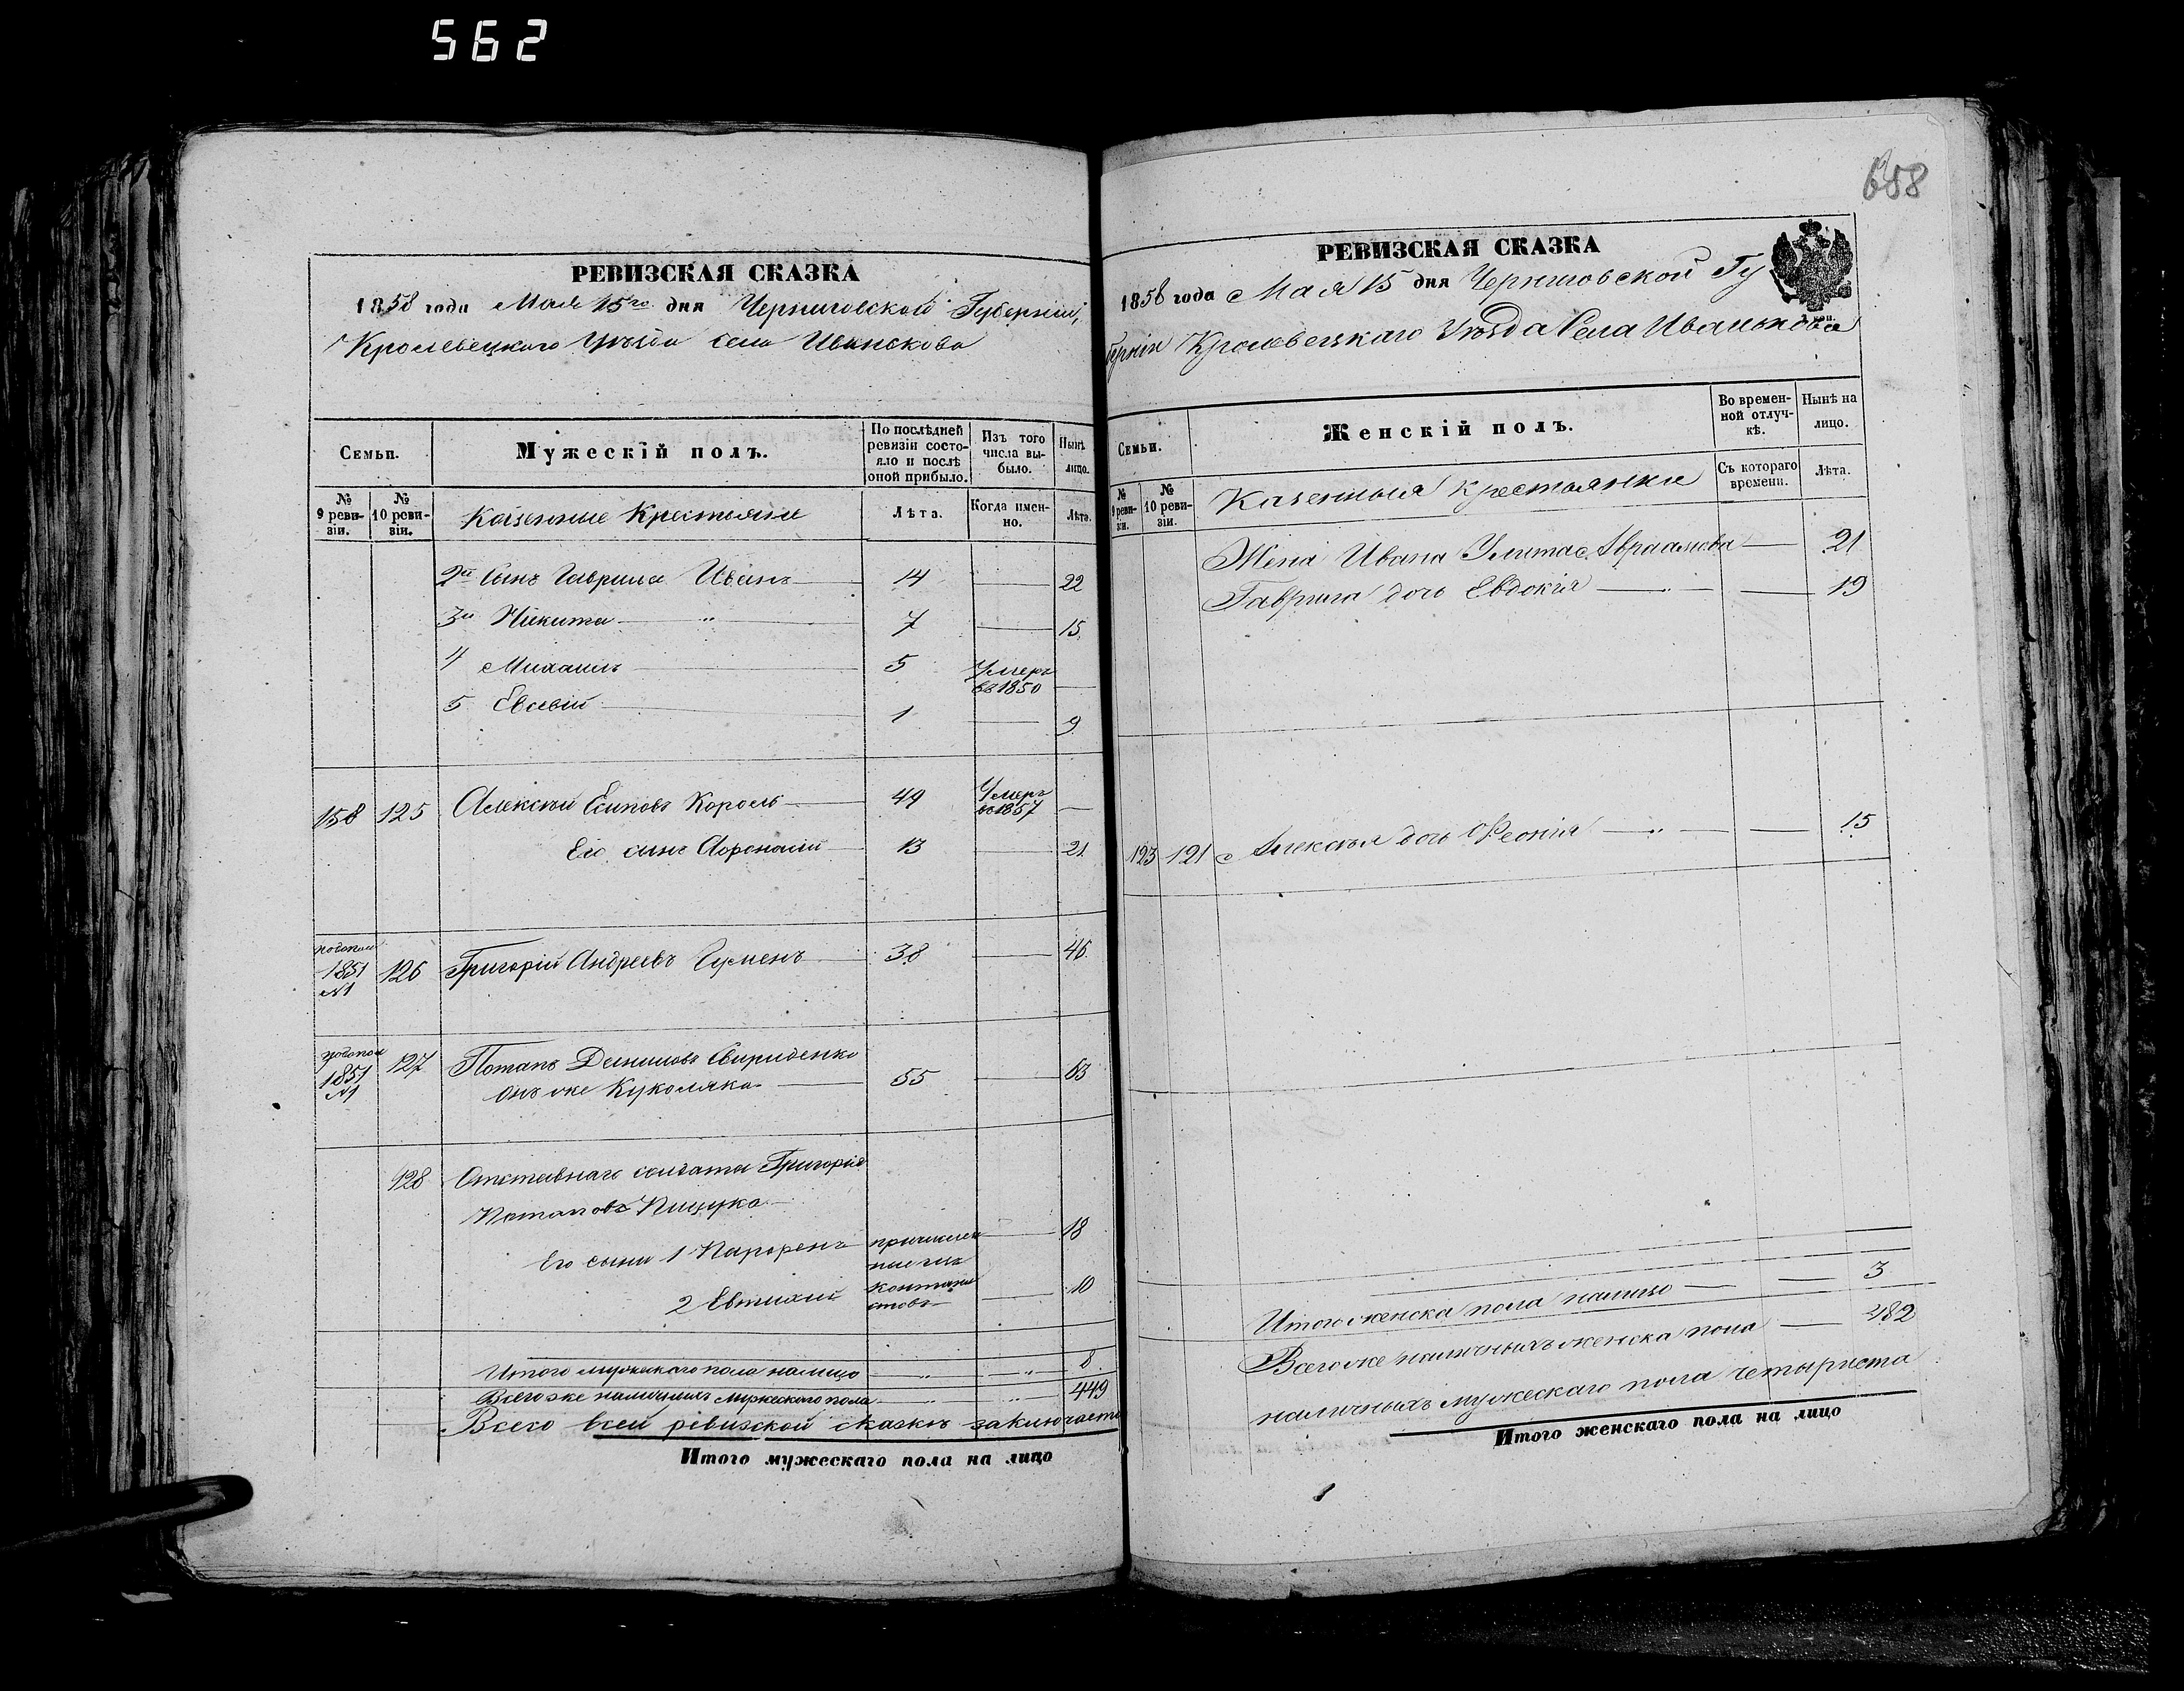 562
658
РЕВИЗСКАЯ СКАЗКА
1858 года Мая 15го дня Черниговской Губернии,
Кролевецкаго Уезда села Иванскова
Семьи.
Мужескій полъ.
По послѣдней ревизіи состояло и послѣ оной прибыло.
Изъ того числа выбыло.
Нынѣ лицо.
№ 9 ревизіи.
№ 10 ревизіи.
Казенные Крестьяне
Лѣта.
Когда именно.
Лѣта.
2й Сынъ Гаврила Иванъ 14 22
3й Никита " 7 15
4 Михаилъ 5 Умеръ въ 1850
5 Евсевій 1 9
158 125 Алексѣй Есиповъ Король 49 Умеръ въ 1857
Его сынъ Афонасій 13 21
1851 №1 126 Григорій Андреевъ Гуменъ 38 46
1851 №1 127 Потапъ Даниловъ Свириденко
онъ же Куколяка 55 63
128 Отставнаго солдата Григорія
Потапова Пищука
Его сыны 1 Парфенъ 18
2 Евтихій 10
Итого мужескаго пола налицо 8
Всего же наличныхъ мужескаго пола 449
Всего всей ревизской сказкѣ заключается
Итого мужескаго пола на лицо
РЕВИЗСКАЯ СКАЗКА
1858 года Мая 15 дня Черниговской Гу
берніи Кролевецкаго Уѣзда Села Иванькова
Семьи.
Женскій полъ.
Во временной отлучкѣ.
Нынѣ на лицо.
№ 9 ревизіи.
№ 10 ревизіи.
Казенныя Крестьянки
Съ котораго времени.
Лѣта.
Жена Ивана Улита Авраамова 21
Гаврила дочь Евдокія 19
123 121 Алексѣя дочь Феонія 15
Итого женска пола налицо 3
Всего же наличныхъ женска пола 482
наличныхъ мужескаго пола четыриста
Итого женскаго пола на лицо